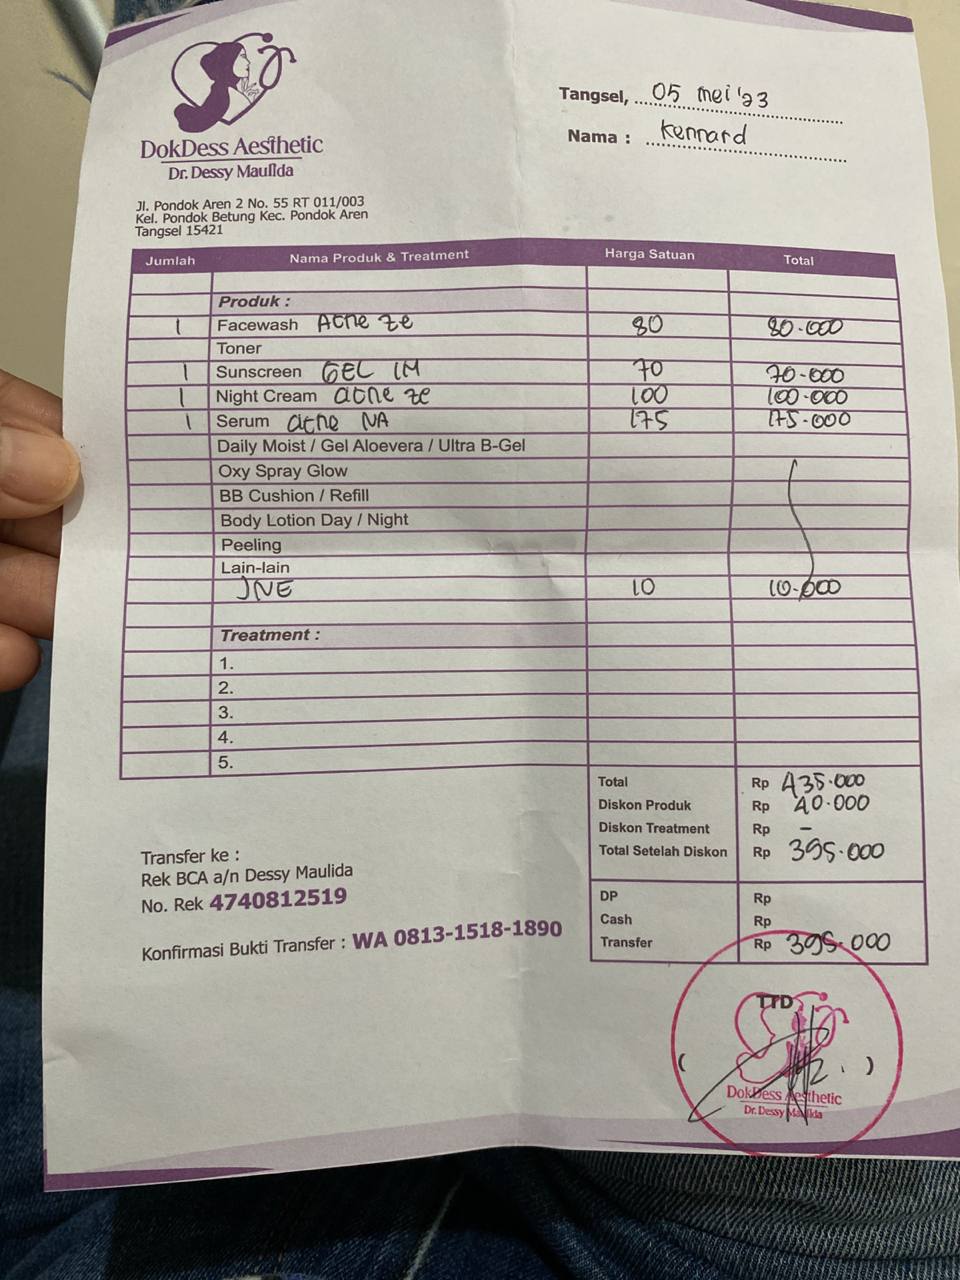 DokDess Aesthetic
Dr. Dessy Maulida
Tangsel, 05 mei '23
Nama : Kennard
Jl. Pondok Aren 2 No. 55 RT 011/003
Kel. Pondok Betung Kec. Pondok Aren
Tangsel 15421
Jumlah Nama Produk & Treatment Harga Satuan Total
Produk :
1 Facewash Acne Ze 80 80.000
Toner
1 Sunscreen GEL IM 70 70.000
1 Night Cream acne ze 100 100.000
1 Serum acne NA 175 175.000
Daily Moist / Gel Aloevera / Ultra B-Gel
Oxy Spray Glow
BB Cushion / Refill
Body Lotion Day / Night
Peeling
Lain-lain
JNE 10 10.000
Treatment :
1.
2.
3.
4.
5.
Total Rp 435.000
Diskon Produk Rp 40.000
Diskon Treatment Rp -
Total Setelah Diskon Rp 395.000
DP Rp
Cash Rp
Transfer Rp 395.000
Transfer ke :
Rek BCA a/n Dessy Maulida
No. Rek 4740812519
Konfirmasi Bukti Transfer : WA 0813-1518-1890
TTD
( )
DokDess Aesthetic
Dr. Dessy Maulida